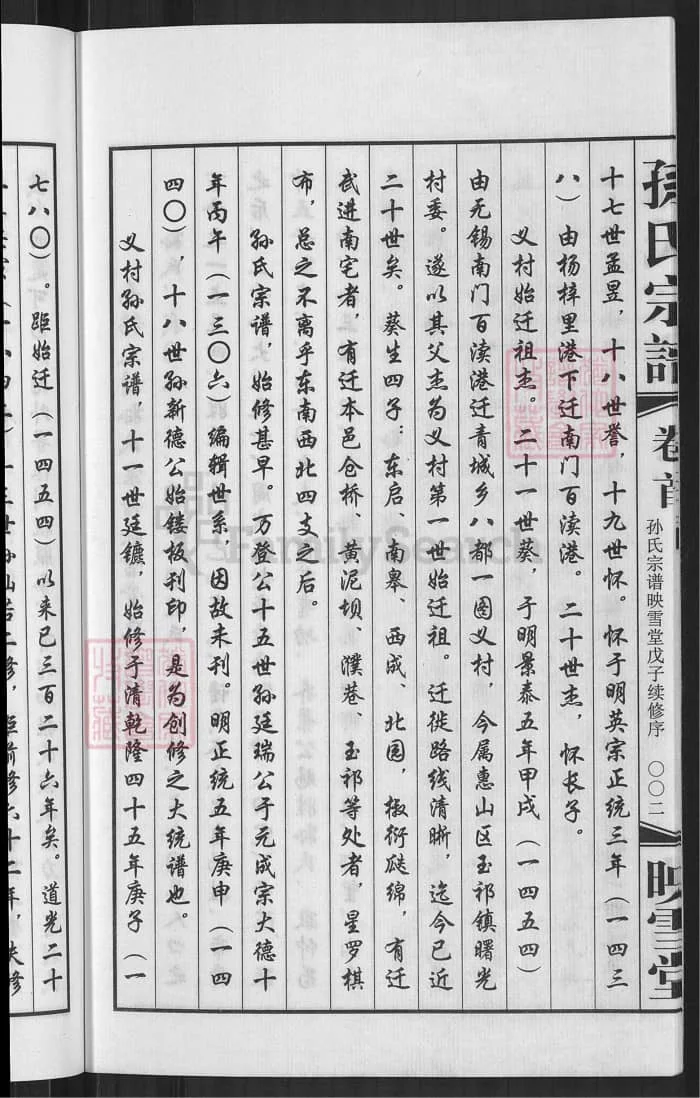 孙氏宗谱
卷首
孙氏宗谱映雪堂戊子续修序
〇〇二
映雪堂
十七世孟昱，十八世誉，十九世怀。怀于明英宗正统三年（一四三
八）由杨梓里港下迁南门百渎港。二十世杰，怀长子。
义村始迁祖杰。二十一世葵，于明景泰五年甲戌（一四五四）
由无锡南门百渎港迁青城乡八都一图义村，今属惠山区玉祁镇曙光
村委。遂以其父杰为义村第一世始迁祖。迁徙路线清晰，迄今已近
二十世矣。葵生四子：东启、南皋、西成、北园，椒衍瓞绵，有迁
武进南宅者，有迁本邑仓桥、黄泥坝、濮巷、玉祁等处者，星罗棋
布，总之不离乎东南西北四支之后。
孙氏宗谱，始修甚早。万登公十五世孙廷瑞公于元成宗大德十
年丙午（一三〇六）编辑世系，因故未刊。明正统五年庚申（一四
四〇），十八世孙新德公始镂板刊印，是为创修之大统谱也。
义村孙氏宗谱，十一世廷镳，始修于清乾隆四十五年庚子（一
七八〇）。距始迁（一四五四）以来已三百二十六年矣。道光二十
FamilySearch